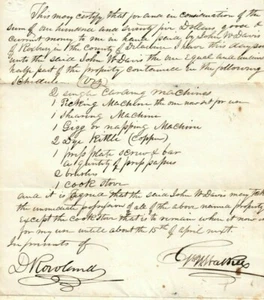 This may certify that for and in consideration of the
sum of one hundred and seventy five Dollars good &
current money to me in hand paid by John W Davis
of Roxbury in the County of Delaware I have this day sold
unto the said John W Davis the one equal and undivided
half part of the property contained in the following
Schedule (viz)
2 single Carding machines
1 Picking Machine the one now in use
1 Shearing Machine
1 Gigg or napping Machine
2 Dye Kettle (Copper)
1 press plate screw & bar
a quantity of press papers
2
1 cook stove
and it is agreed that the said John W Davis may take
the immediate possession of all of the above named property
Except the Cook Stove that is to remain where it now is
for my use untill about the 15th of April next.
In presence of
D Rowland